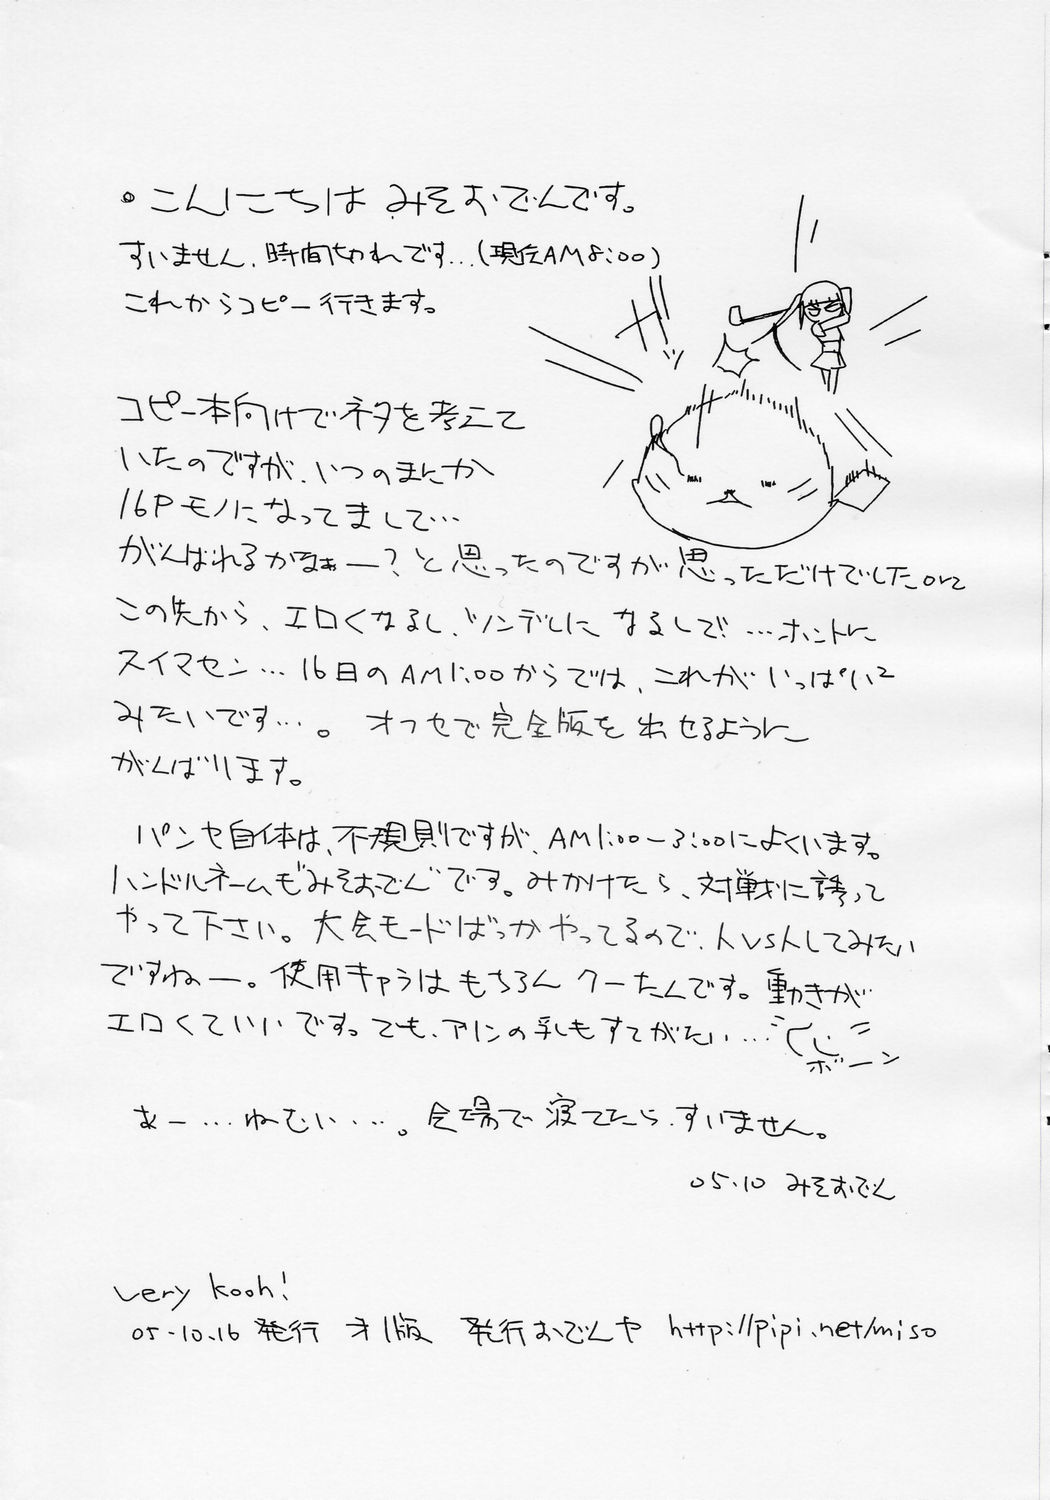 ・こんにちは みそおでんです。
すいません、時間切れです…(現在AM8:00)
これからコピー行きます。
コピー本向けでネタを考えて
いたのですが、いつのまにか
16Pモノになってまして…
がんばれるかなぁー?と思ったのですが思っただけでしたorz
この先から、エロくなるし、ツンデレになるしで!…ホントに
スイマセン…16日のAM1:00からでは、これがいっぱい²
みたいです…。 オフセで完全版を出せるように
がんばります。
パンヤ自体は、不規則ですが、AM1:00-3:00によくいます。
ハンドルネームも"みそおでん"です。みかけたら、対戦に誘って
やって下さい。大会モードばっかやってるので、人vs人してみたい
ですねー。使用キャラはもちろん クーたんです。動きが
エロくていいです。でも、アリンの乳もすてがたい…
ボーン
あー…ねむい…。会場で寝てたら、すいません。
05.10 みそおでん
very kooh!
05.10.16 発行 オ1版 発行おでんや http://pipi.net/miso